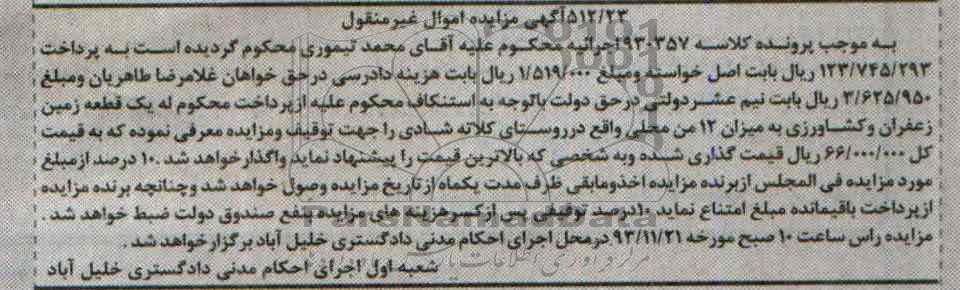 ۵۱۲/۲۳آگهی مزایده اموال غیرمنقول
به موجب پرونده کلاسه ۹۳۰۳۵۷ اجرائیه محکوم علیه آقای محمد تیموری محکوم گردیده است به پرداخت
۱۲۳/۷۴۵/۲۹۳ ریال بابت اصل خواسته ومبلغ ۱/۵۱۹/۰۰۰ ریال بابت هزینه دادرسی درحق خواهان غلامرضا طاهریان ومبلغ
۳/۶۲۵/۹۵۰ ریال بابت نیم عشردولتی درحق دولت باتوجه به استنکاف محکوم علیه ازپرداخت محکوم له یک قطعه زمین
زعفران وکشاورزی به میزان ۱۲ من محلی واقع درروستای کلاته شادی را جهت توقیف ومزایده معرفی نموده که به قیمت
کل ۶۶/۰۰۰/۰۰۰ ریال قیمت گذاری شده وبه شخصی که بالاترین قیمت را پیشنهاد نماید واگذارخواهد شد .۱۰ درصد ازمبلغ
مورد مزایده فی المجلس ازبرنده مزایده اخذومابقی ظرف مدت یکماه ازتاریخ مزایده وصول خواهد شد وچنانچه برنده مزایده
ازپرداخت باقیمانده مبلغ امتناع نماید ۱۰درصد توقیفی پس ازکسرهزینه های مزایده بنفع صندوق دولت ضبط خواهد شد .
مزایده راس ساعت ۱۰ صبح مورخه ۹۳/۱۱/۲۱ درمحل اجرای احکام مدنی دادگستری خلیل آباد برگزارخواهد شد .
شعبه اول اجرای احکام مدنی دادگستری خلیل آباد